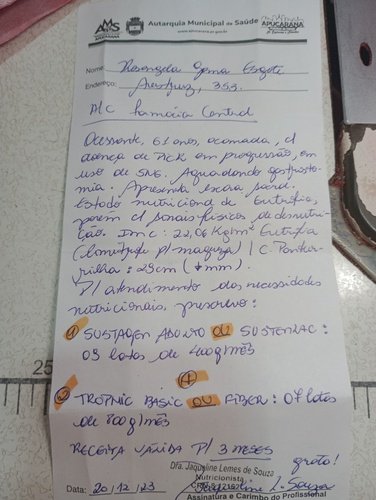 AMS
APUCARANA
Autarquia Municipal de Saúde
www.apucarana.pr.gov.br
APUCARANA
Nome:
Endereço: 353
A/C Farmácia Central
61 anos, acamada, c/
doença de em progressão, em
uso de SNE. Aguardando gastrosto-
mia. Apresenta escara
Estado nutricional de Eutrofia,
porém c/ sinais físicos de desnutri-
ção. Imc: 22,06 Kg/m² Eutrofia
(limítrofe p/ magreza) / C. Pantur-
rilha: 29cm (↓mm).
P/ atendimento das necessidades
nutricionais, prescrevo:
① SUSTAGEN ADULTO OU SUSTENLAC:
latas de 400g/mês
+
② TROPHIC BASIC OU FIBER: 07 latas
de 800g/mês
RECEITA VÁLIDA P/ 3 MESES
grata!
Dra. Jaqueline Lemes de Souza
Nutricionista
Data: 20/12/23 Jaqueline L. Souza
Assinatura e Carimbo do Profissional
25